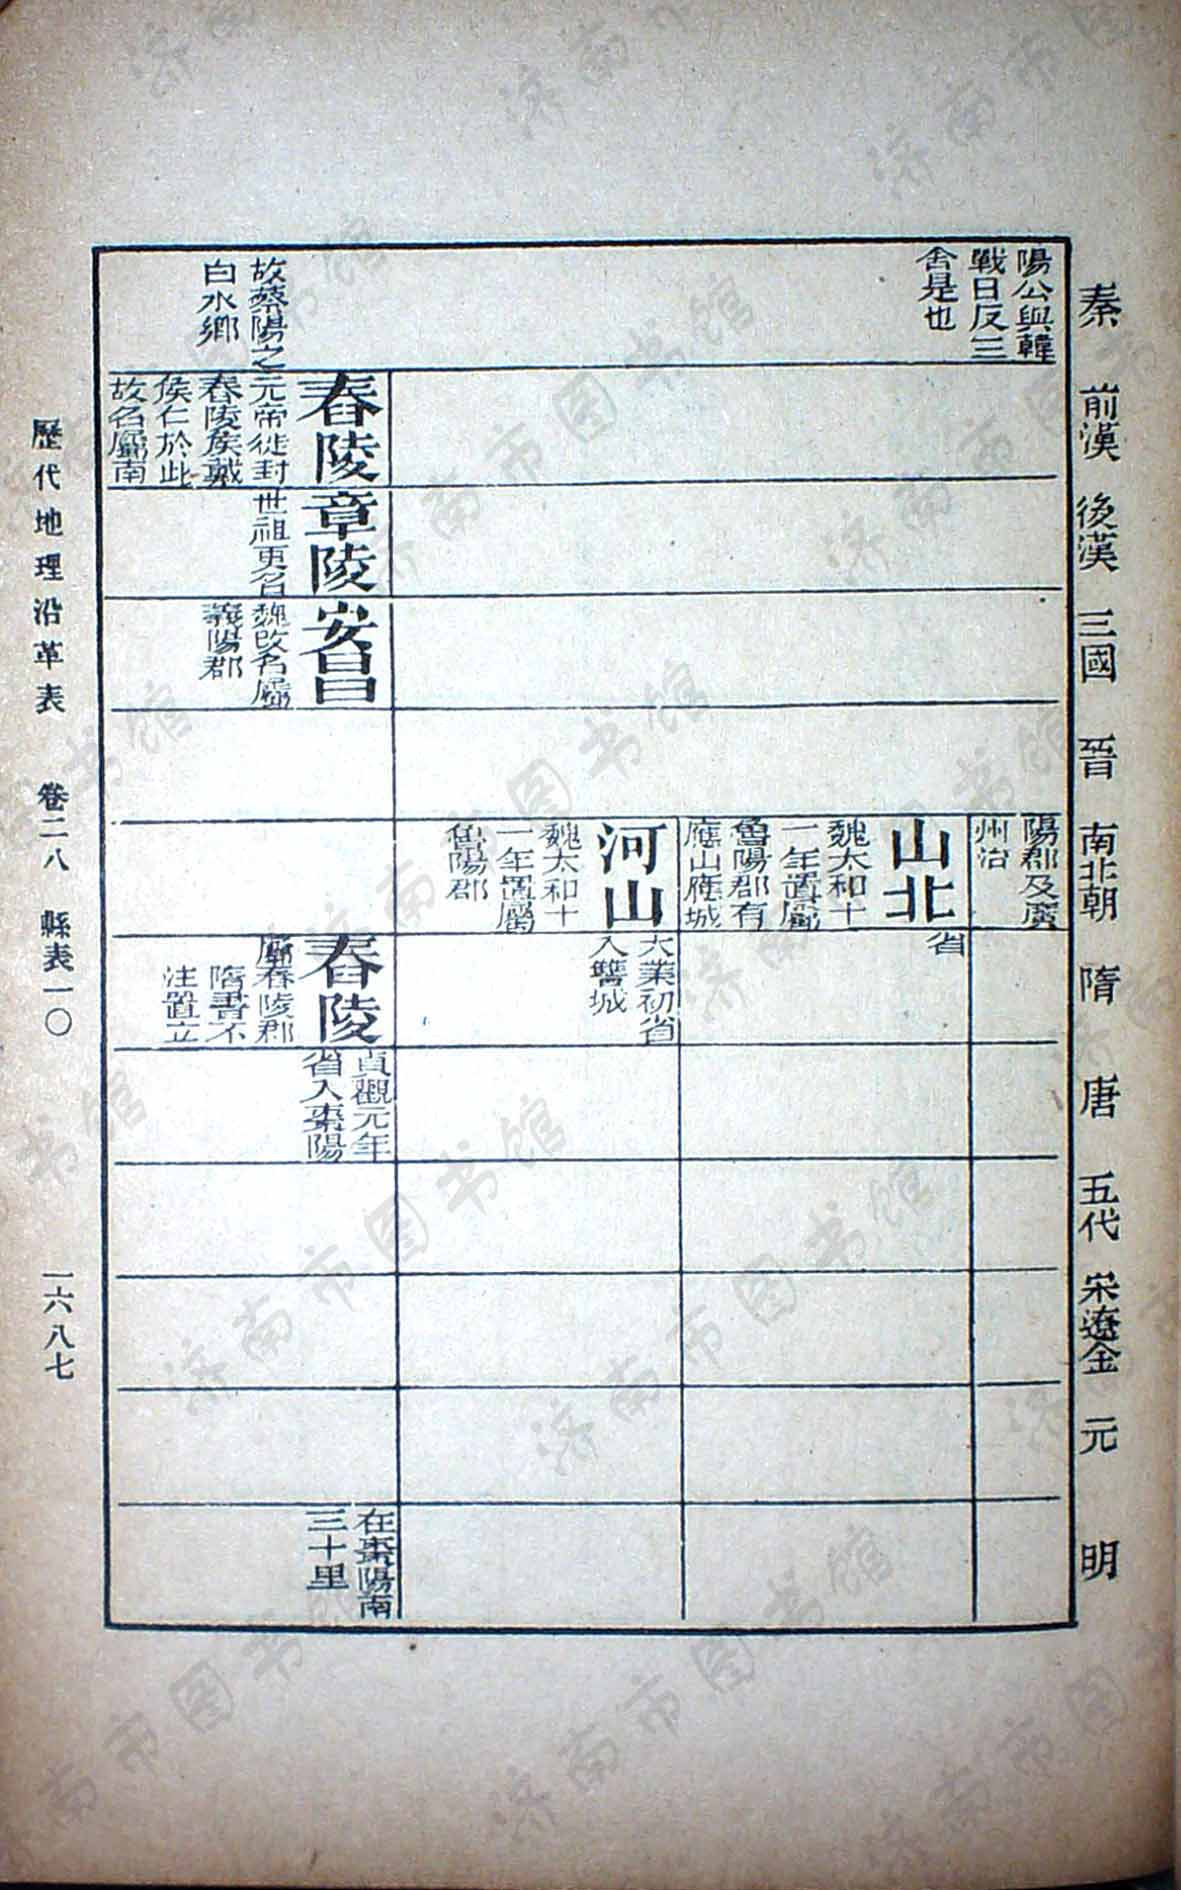 秦
前漢
後漢
三國
晉
南北朝
隋
唐
五代
宋遼金
元
明
陽公與韓
戰日反三
舍是也
陽郡及廣
州治
山北
魏太和十
一年置屬
魯陽郡有
應山應城
省
河山
魏太和十
一年置屬
魯陽郡
大業初省
入犨城
故蔡陽之
白水鄉
舂陵
元帝徙封
舂陵侯戴
侯仁於此
故名屬南
章陵
世祖更名
安昌
魏改名屬
義陽郡
舂陵
屬舂陵郡
隋書不
注置立
貞觀元年
省入棗陽
在棗陽南
三十里
歷代地理沿革表 卷二八 縣表一〇 一六八七
济南市图书馆